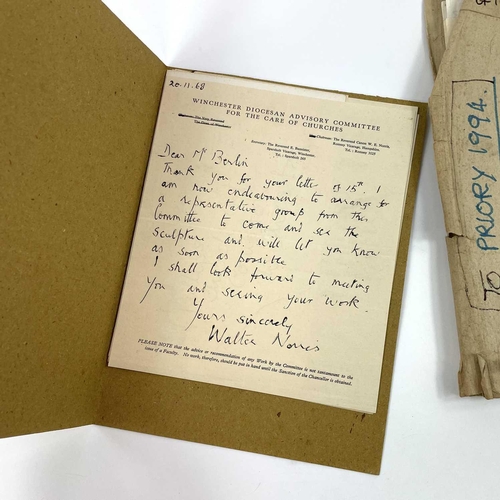 20.11.68
WINCHESTER DIOCESAN ADVISORY COMMITTEE
FOR THE CARE OF CHURCHES
Chairman: The Reverend Canon W. E. Norris,
Romsey Vicarage, Hampshire.
Tel.: Romsey
Secretary: The Reverend E. Bannister,
Sparsholt Vicarage, Winchester.
Tel.: Sparsholt
Dear Mr Berlin
Thank you for your letter of 15th. I
am now endeavouring to arrange for
a representative group from the
Committee to come and see the
sculpture and will let you know
as soon as possible
I shall look forward to meeting
you and seeing your work.
Yours sincerely
Walter Norris
PLEASE NOTE that the advice or recommendation of any Work by the Committee is not tantamount to the
issue of a Faculty. No work, therefore, should be put in hand until the Sanction of the Chancellor is obtained.
TO PRIORY 1994.